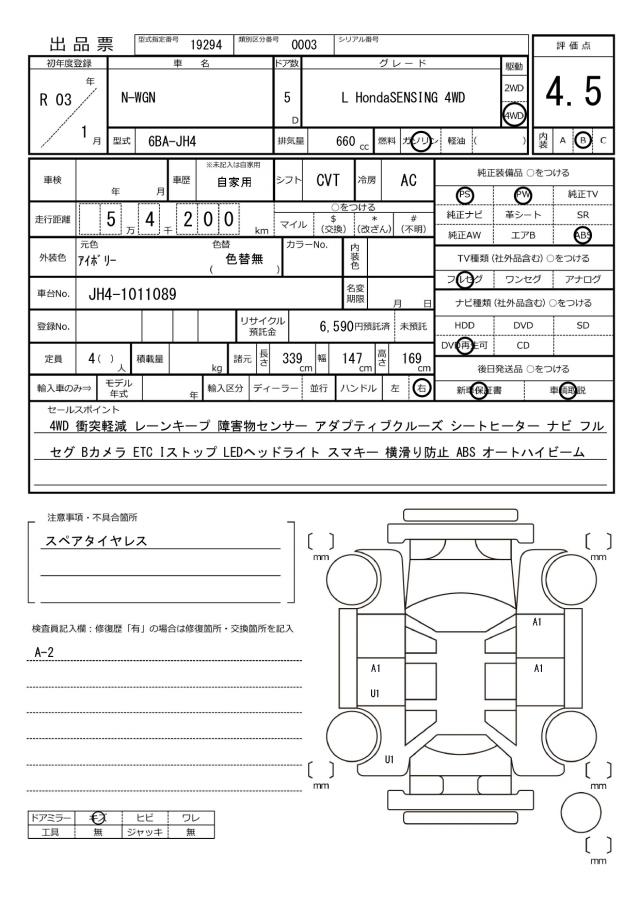 出品票 型式指定番号 19294 類別区分番号 0003 シリアル番号
評価点
4.5
内装 A B C
初年度登録 車名 ドア数 グレード 駆動
R 03 年 1 月 N-WGN 5 D L HondaSENSING 4WD 2WD 4WD
型式 6BA-JH4 排気量 660 cc 燃料 ガソリン 軽油 ( )
車検 年 月 車歴 ※未記入は自家用 自家用 シフト CVT 冷房 AC
走行距離 5 万 4 千 2 0 0 km ○をつける
マイル $ (交換) * (改ざん) # (不明)
外装色 元色 アイボリー 色替 ( 色替無 ) カラーNo. 内装色
車台No. JH4-1011089 名変期限 月 日
登録No. リサイクル預託金 6,590円預託済 未預託
定員 4 ( ) 人 積載量 kg 諸元 長さ 339 cm 幅 147 cm 高さ 169 cm
輸入車のみ⇒ モデル年式 年 輸入区分 ディーラー 並行 ハンドル 左 右
純正装備品 ○をつける
PS PW 純正TV
純正ナビ 革シート SR
純正AW エアB ABS
TV種類 (社外品含む) ○をつける
フルセグ ワンセグ アナログ
ナビ種類 (社外品含む) ○をつける
HDD DVD SD
DVD再生可 CD
後日発送品 ○をつける
新車保証書 車輌取説
セールスポイント
4WD 衝突軽減 レーンキープ 障害物センサー アダプティブクルーズ シートヒーター ナビ フル
セグ Bカメラ ETC Iストップ LEDヘッドライト スマキー 横滑り防止 ABS オートハイビーム
注意事項・不具合箇所
スペアタイヤレス
検査員記入欄：修復歴「有」の場合は修復箇所・交換箇所を記入
A-2
ドアミラー キズ ヒビ ワレ
工具 無 ジャッキ 無
〔 〕 mm
〔 〕 mm
A1
A1
A1
U1
U1
〔 〕 mm
〔 〕 mm
〔 〕 mm